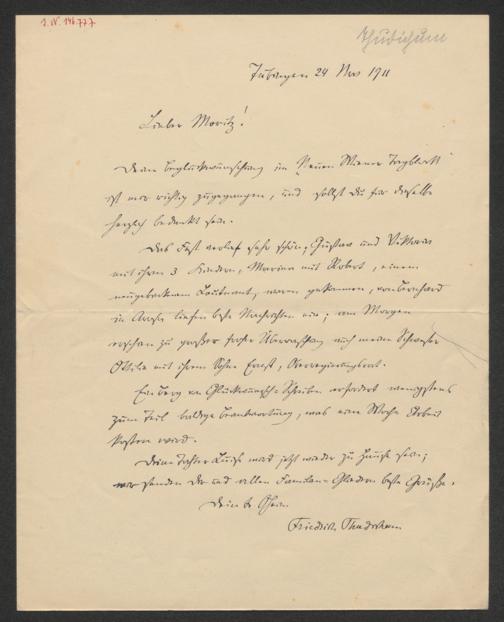 J. N. 146.777
Thudichum
Tübingen 24 Nov 1911
Lieber Moritz!
Deine Beglückwünschung im Neuen Wiener Tagblatt
ist mir richtig zugegangen, und sollst Du für dieselbe
herzlich bedankt sein.
Das Fest verlief sehr schön; Gustav und Viktoria
mit ihren 3 Kindern, Marian mit Robert, einem
neugebackenen Leutnant, waren gekommen, von Bernhard
in liefen beste Nachrichten ein; am Morgen
erschien zu großer froher Überraschung auch meine Schwester
Ottilie mit ihrem Sohn Ernst, Oberregierungsrat.
Ein Berg von Glückwunsch-Schreiben erfordert wenigstens
zum Teil baldige Beantwortung, was eine Woche Arbeit
kosten wird.
Deine Tochter Luise wird jetzt wieder zu Hause sein;
wir senden Dir und allen Familien-Gliedern beste Grüße.
Dein Oheim
Friedrich Thudichum